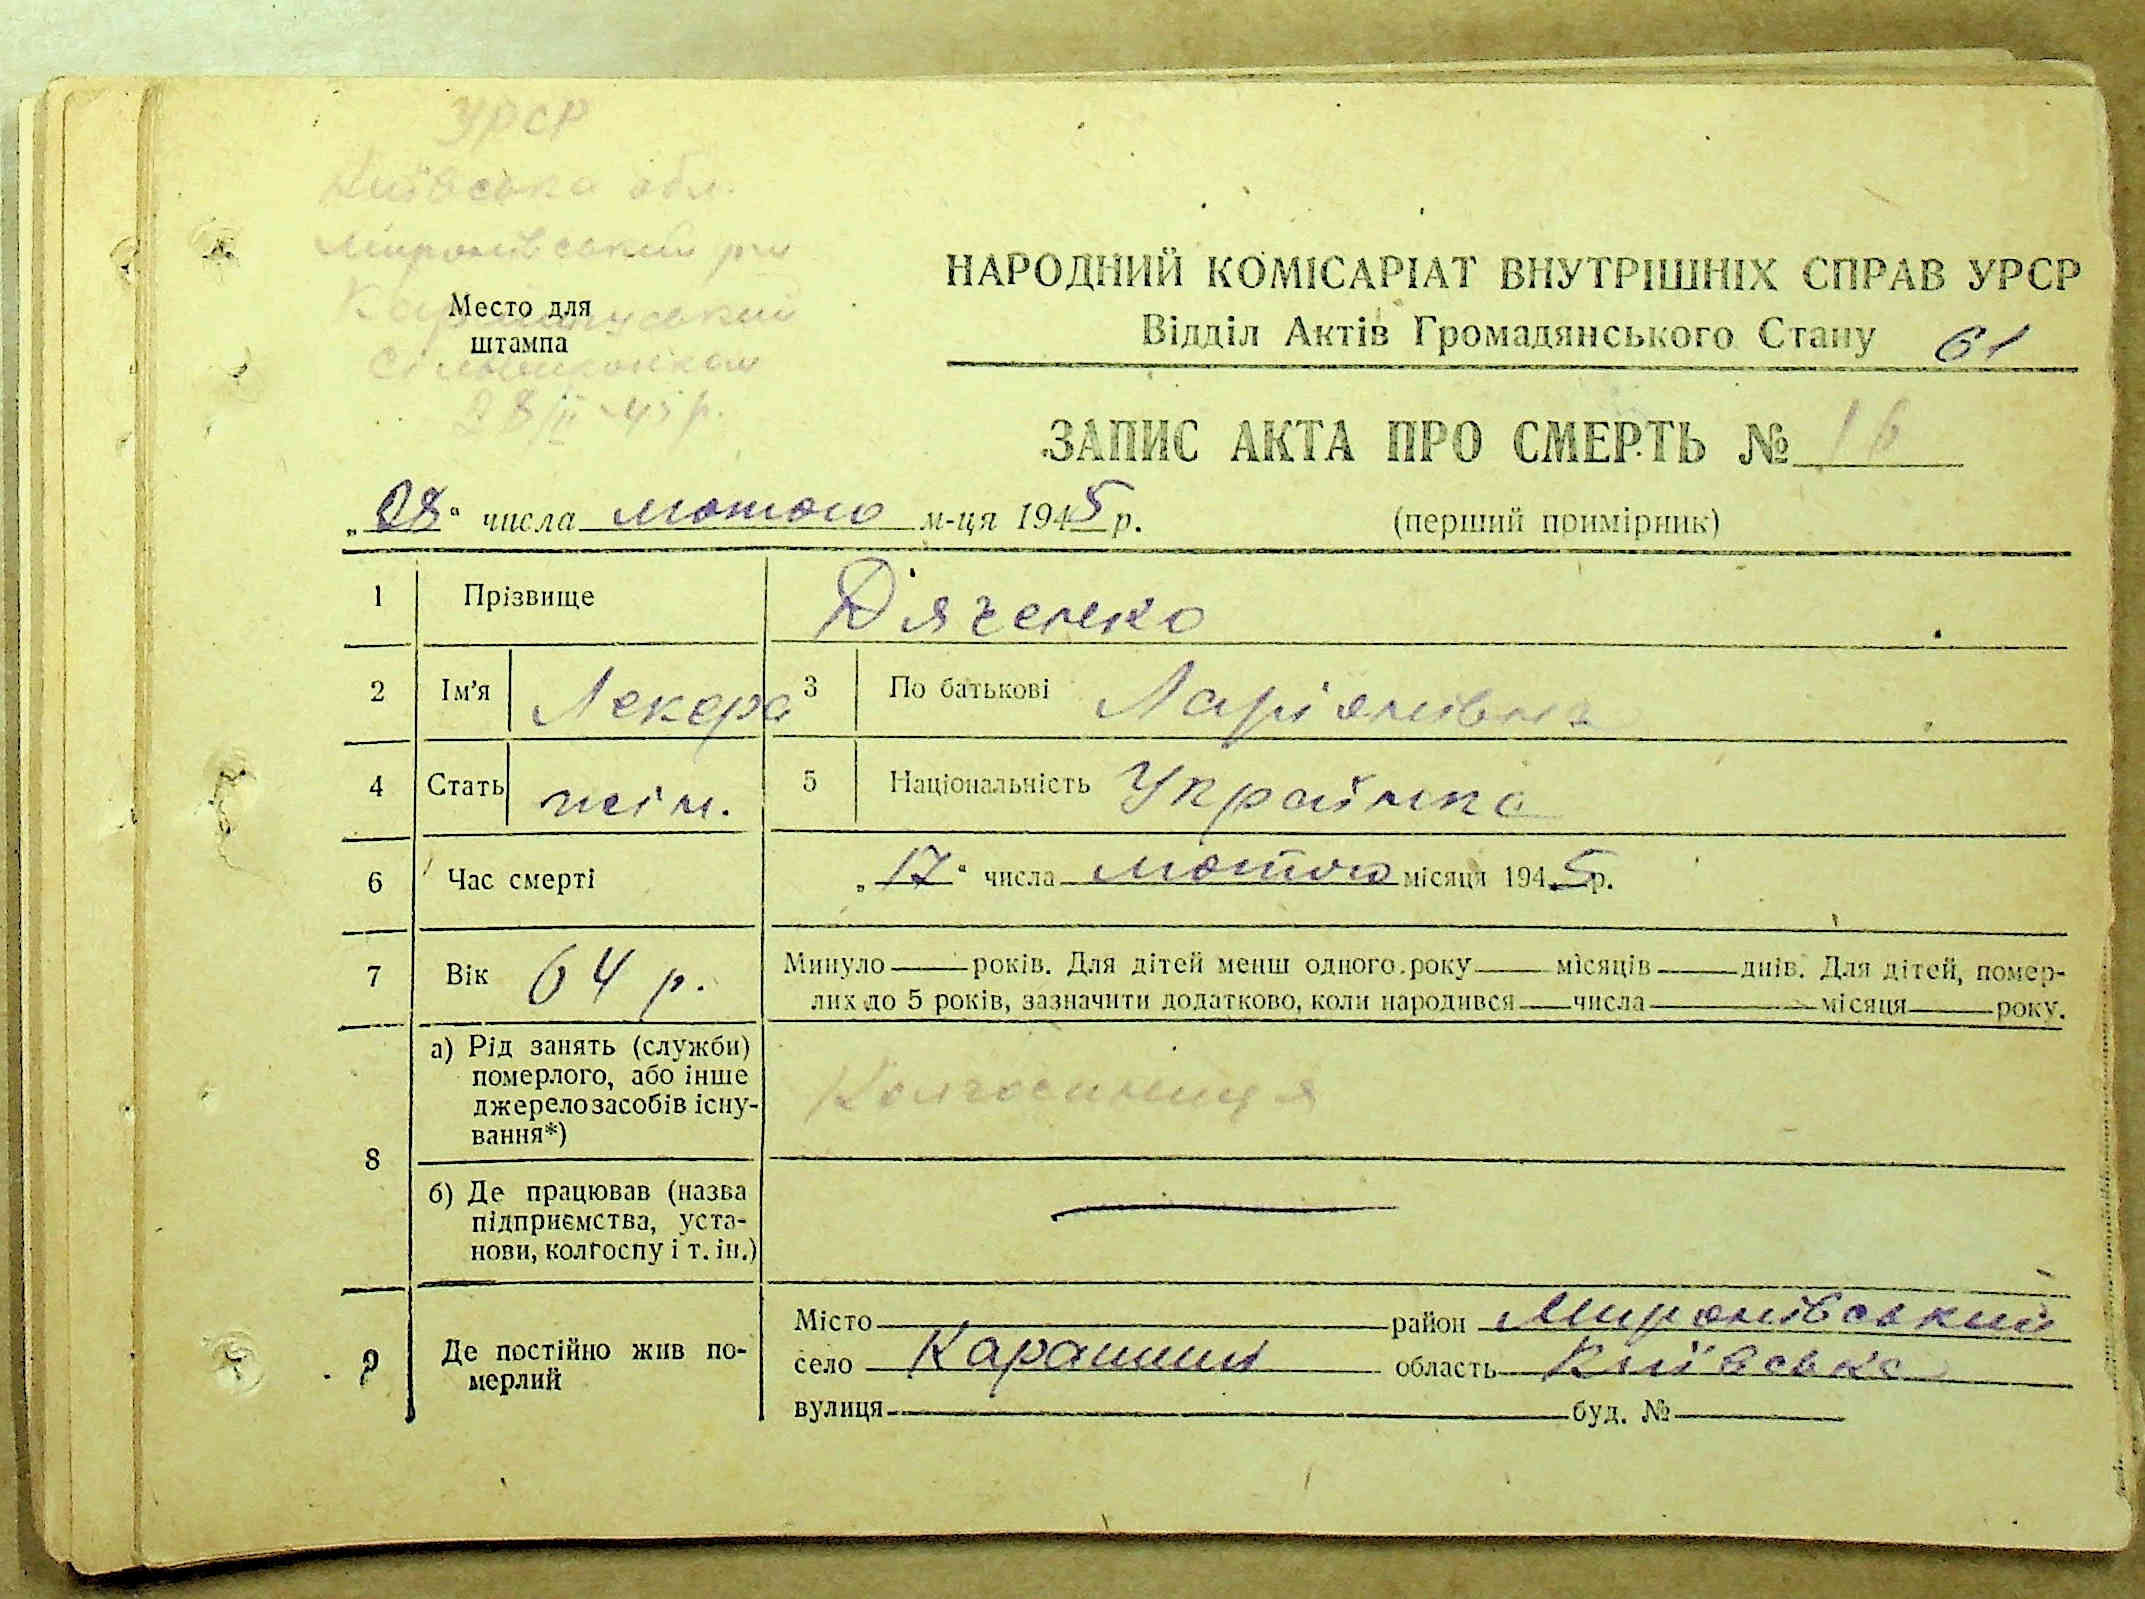 УРСР
Київська обл.
Миронівський р-н
Место для
штампа
28/II-45 р.
НАРОДНИЙ КОМІСАРІАТ ВНУТРІШНІХ СПРАВ УРСР
Відділ Актів Громадянського Стану 61
ЗАПИС АКТА ПРО СМЕРТЬ № 16
„28“ числа лютого м-ця 1945 р.
(перший примірник)
1 Прізвище Діяченко
2 Ім'я Лекера 3 По батькові Ларіонівна
4 Стать жін. 5 Національність Українка
6 Час смерті „17“ числа лютого місяця 1945 р.
7 Вік 64 р. Минуло — років. Для дітей менш одного року — місяців — днів. Для дітей, помер-
лих до 5 років, зазначити додатково, коли народився — числа — місяця — року.
8 а) Рід занять (служби)
померлого, або інше
джерело засобів існу-
вання*)
Колгоспниця
б) Де працював (назва
підприємства, уста-
нови, колгоспу і т. ін.)
—
9 Де постійно жив по-
мерлий
Місто — район Миронівський
село Карапиши область Київська
вулиця — буд. № —